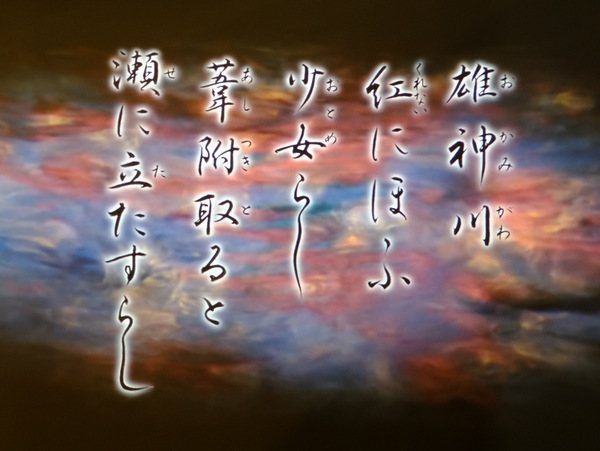 雄神川
紅にほふ
少女らし
葦附取ると
瀬に立たすらし
おかみがわ
くれない
おとめ
あしつきと
せた